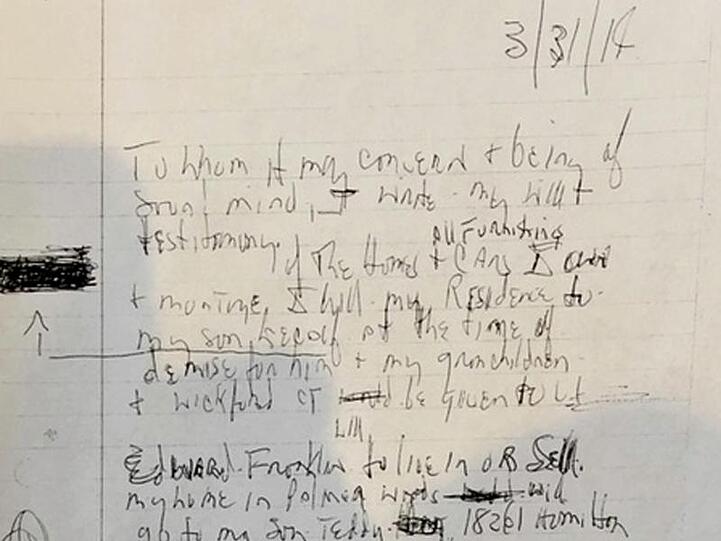 3/31/14
To whom it may concern + being of
sound mind, I write my will +
testimony.
All Furnishings
of The Homes + CARS I own
+ mortgage, I will my Residence to
my son, Kecalf at the time of
demise for him + my granchildren
+ wickford CT be given to
will
Edward Franklin to live in OR Sell.
my home in Palmer woods will
go to my son Teddy 18261 Hamilton